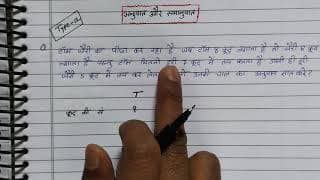 Type-2
अनुपात और समानुपात
Q टॉम जैरी का पीछा कर रहा है जब टॉम 8 कूद लगाता है तो जैरी 5 कूद
लगाता है परन्तु टॉम जितनी दूरी 7 कूद में तय करता है उतनी ही दूरी
जैरी 5 कूद में तय कर उनकी चाल का अनुपात ज्ञात करे ?
T
कूद 8